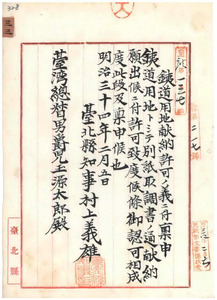 鐵道用地献納許可ノ義ニ付稟申
鐵道用地トシテ別紙取調書ノ通献納
願出候ニ付許可致度候條御認可相成
度此段及稟申候也
明治三十四年二月五日
臺北縣知事村上義雄
臺灣總督男爵兒玉源太郎殿
臺北縣